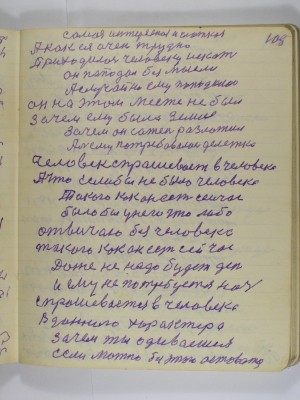 108
самая интересная истина
А как ея очен трудно
Приходился человеку искат
он пападал без мысли
А случайно ему попадалос
он на этом месте не был
Зачем ему была Земля
Зачем он сател разлотил
А ему потребовалос делетка
Человек спрашивает в человека
А что если бы не было человека
Такого как ест сейчас
было бы у него что либо
отвичало без человека
такого как ест сейчас
Даже не надо будет ден
и ему не потребуется ноч
спрашивается в человека
В данного характера
Зачем ты одеваешся
если можно бы этого оставатся